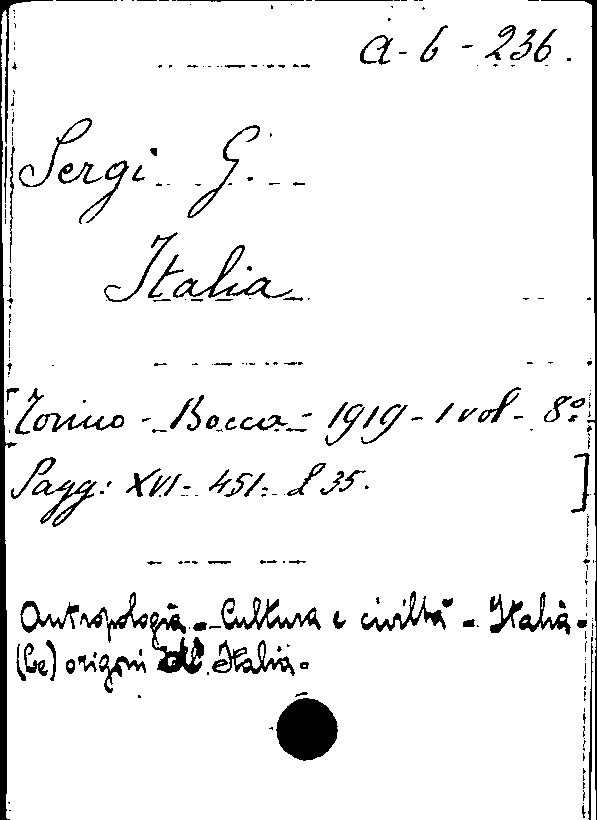 A-6-236.
Sergi G.
Italia
[Torino - Bocca - 1919 - 1 vol - 8º
Pagg: XVI - 451. L 35. ]
Antropologia - Cultura e civiltà - Italia -
(Le) origini d' Italia -